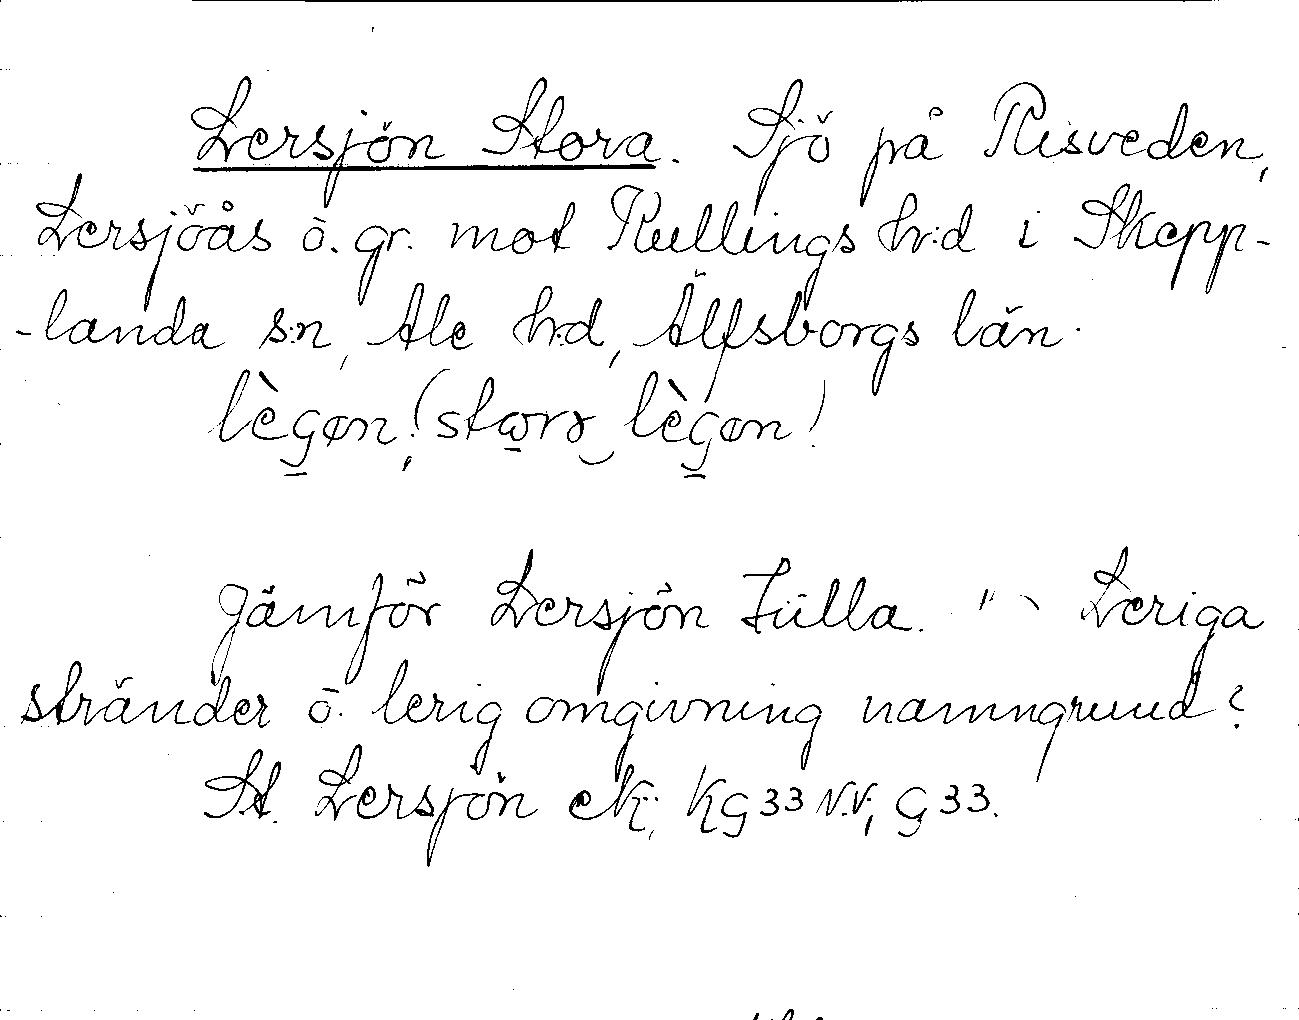 Lersjön Stora. Sjö på Risveden,
Lersjöås o. gr. mot Kullings hrd i Skepp-
-landa sn, Ale hrd, Älfsborgs län.
Jämför Lersjön Lilla. "~ Leriga
stränder o. lerig omgivning namngrund?
St. Lersjön eK, KG33 N.V, G33.